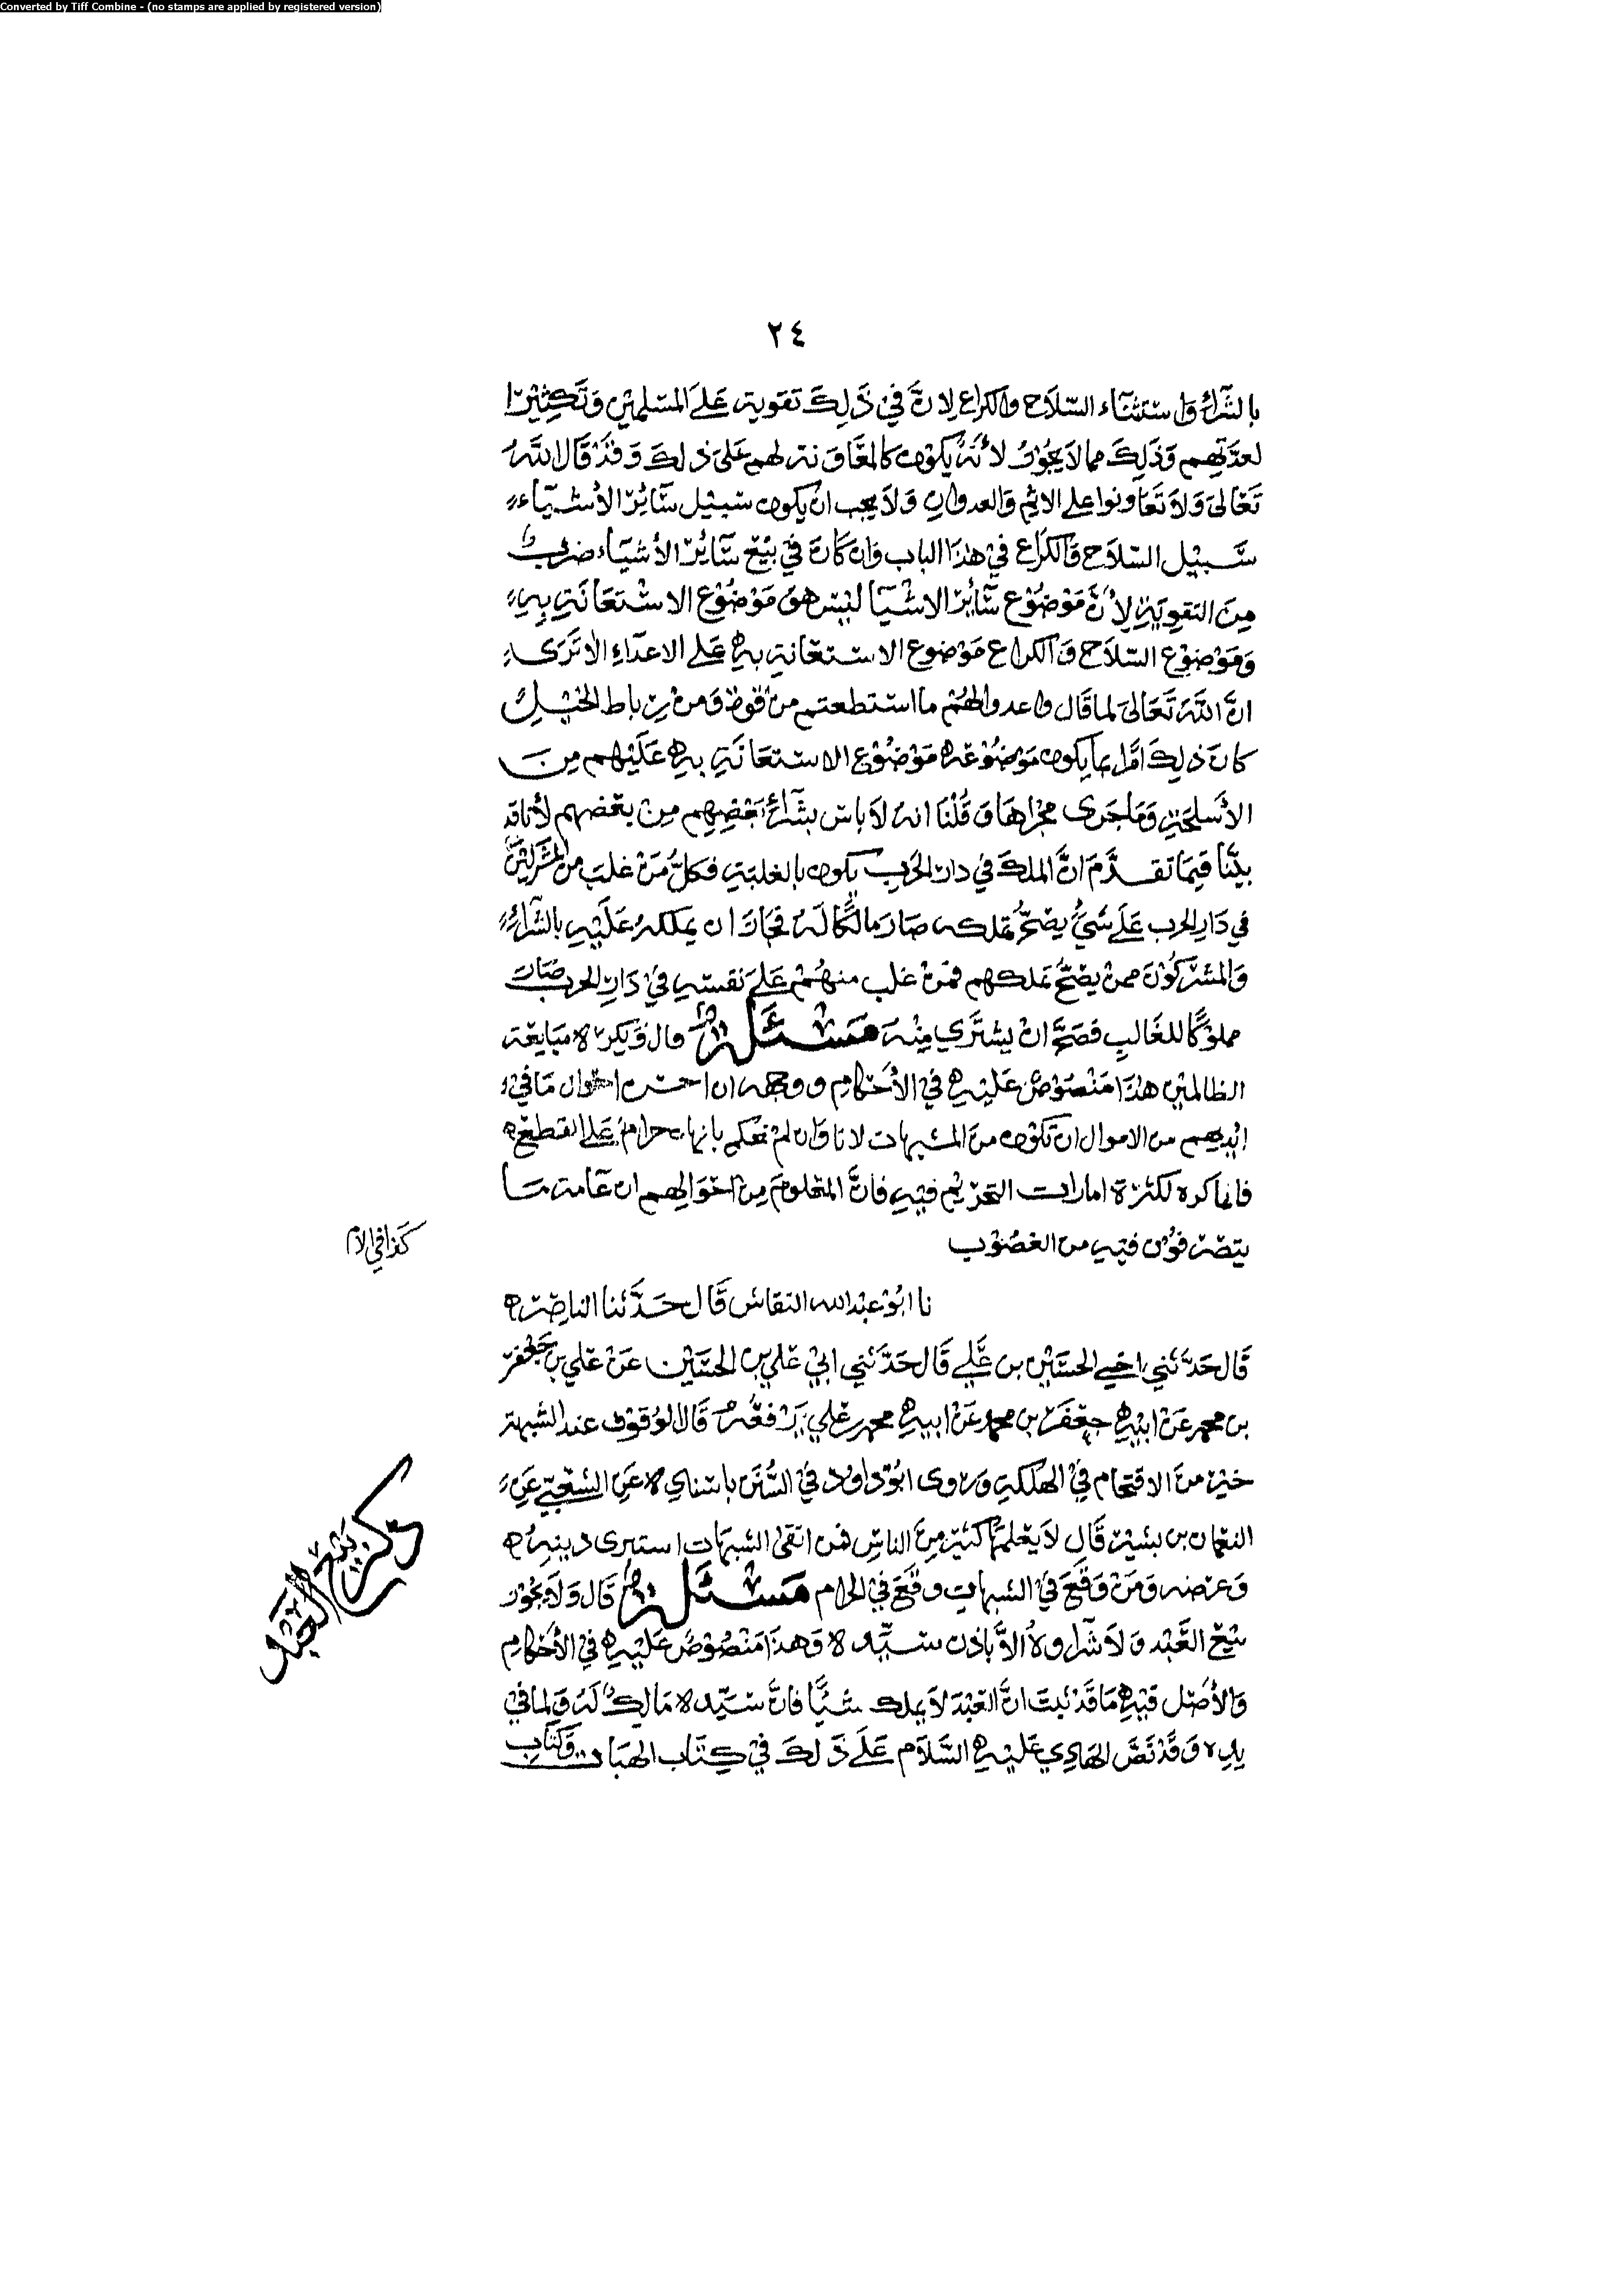 Converted by Tiff Combine - (no stamps are applied by registered version)
٢٤
بالشراء واستثناء السلاح والكراع لان في ذلك تقوية على المسلمين وتكثيرا
لعدتهم وذلك مما لا يجوز لأنه يكون كالمعاونة لهم على ذلك وقد قال الله
تعالى ولا تعاونوا على الاثم والعدوان ولا يجب ان يكون سبيل سائر الأشياء
سبيل السلاح والكراع في هذا الباب وان كان في بيع سائر الأشياء ضرب
من التقوية لأن موضوع سائر الاشيا ليس هو موضوع الاستعانة به
وموضوع السلاح والكراع موضوع الاستعانة به على الاعداء الا ترى
ان الله تعالى لما قال واعدوا لهم ما استطعتم من قوة ومن رباط الخيل
كان ذلك امرا بما يكون موضوعه موضوع الاستعانة به عليهم من
الأسلحة وما جرى مجراها وقلنا انه لا باس بشراء بعضهم من بعضهم لأنا قد
بينا فيما تقدم ان الملك في دار الحرب يكون بالغلبة فكل من غلب من المشركين
في دار الحرب على شيء يصح تملكه صار مالكا له فجاز ان يملكه عليه بالشراء
والمشركون ممن يصح تملكهم فمن غلب منهم على نفسه في دار الحرب صار
مملوكا للغالب فصح ان يشترى منه مسئلة قال ويكره مبايعة
الظالمين هذا منصوص عليه في الأحكام ووجهه ان احسن احوال ما في
ايديهم من الاموال ان تكون من المشبهات لانا وان لم نحكم بانها حرام على القطع
فانما كره لكثرة امارات التحريم فيه فان المعلوم من احوالهم ان عامة ما
يتصرفون فيه من الغصوب
كذا في الام
نا ابو عبد الله النقاش قال حدثنا الناصر
قال حدثني اخي الحسين بن علي قال حدثني ابي علي بن الحسين عن علي بن جعفر
بن محمد عن ابيه جعفر بن محمد عن ابيه محمد بن علي يرفعه قال الوقوف عند الشبهة
خير من الاقتحام في الهلكة وروى ابو داود في السنن باسناده عن الشعبي عن
النعمان بن بشير قال لا يعلمها كثير من الناس فمن اتقى الشبهات استبرى دينه
وعرضه ومن وقع في الشبهات وقع في الحرام مسئلة قال ولا يجوز
بيع العبد ولا شراوه الا باذن سيده وهذا منصوص عليه في الأحكام
ذكر بيع العبد
والأصل فيه ما قد ثبت ان العبد لا يملك شيئا فان سيده مالك له ولما في
يده وقد نص الهادي عليه السلام على ذلك في كتاب الهبات وكتاب